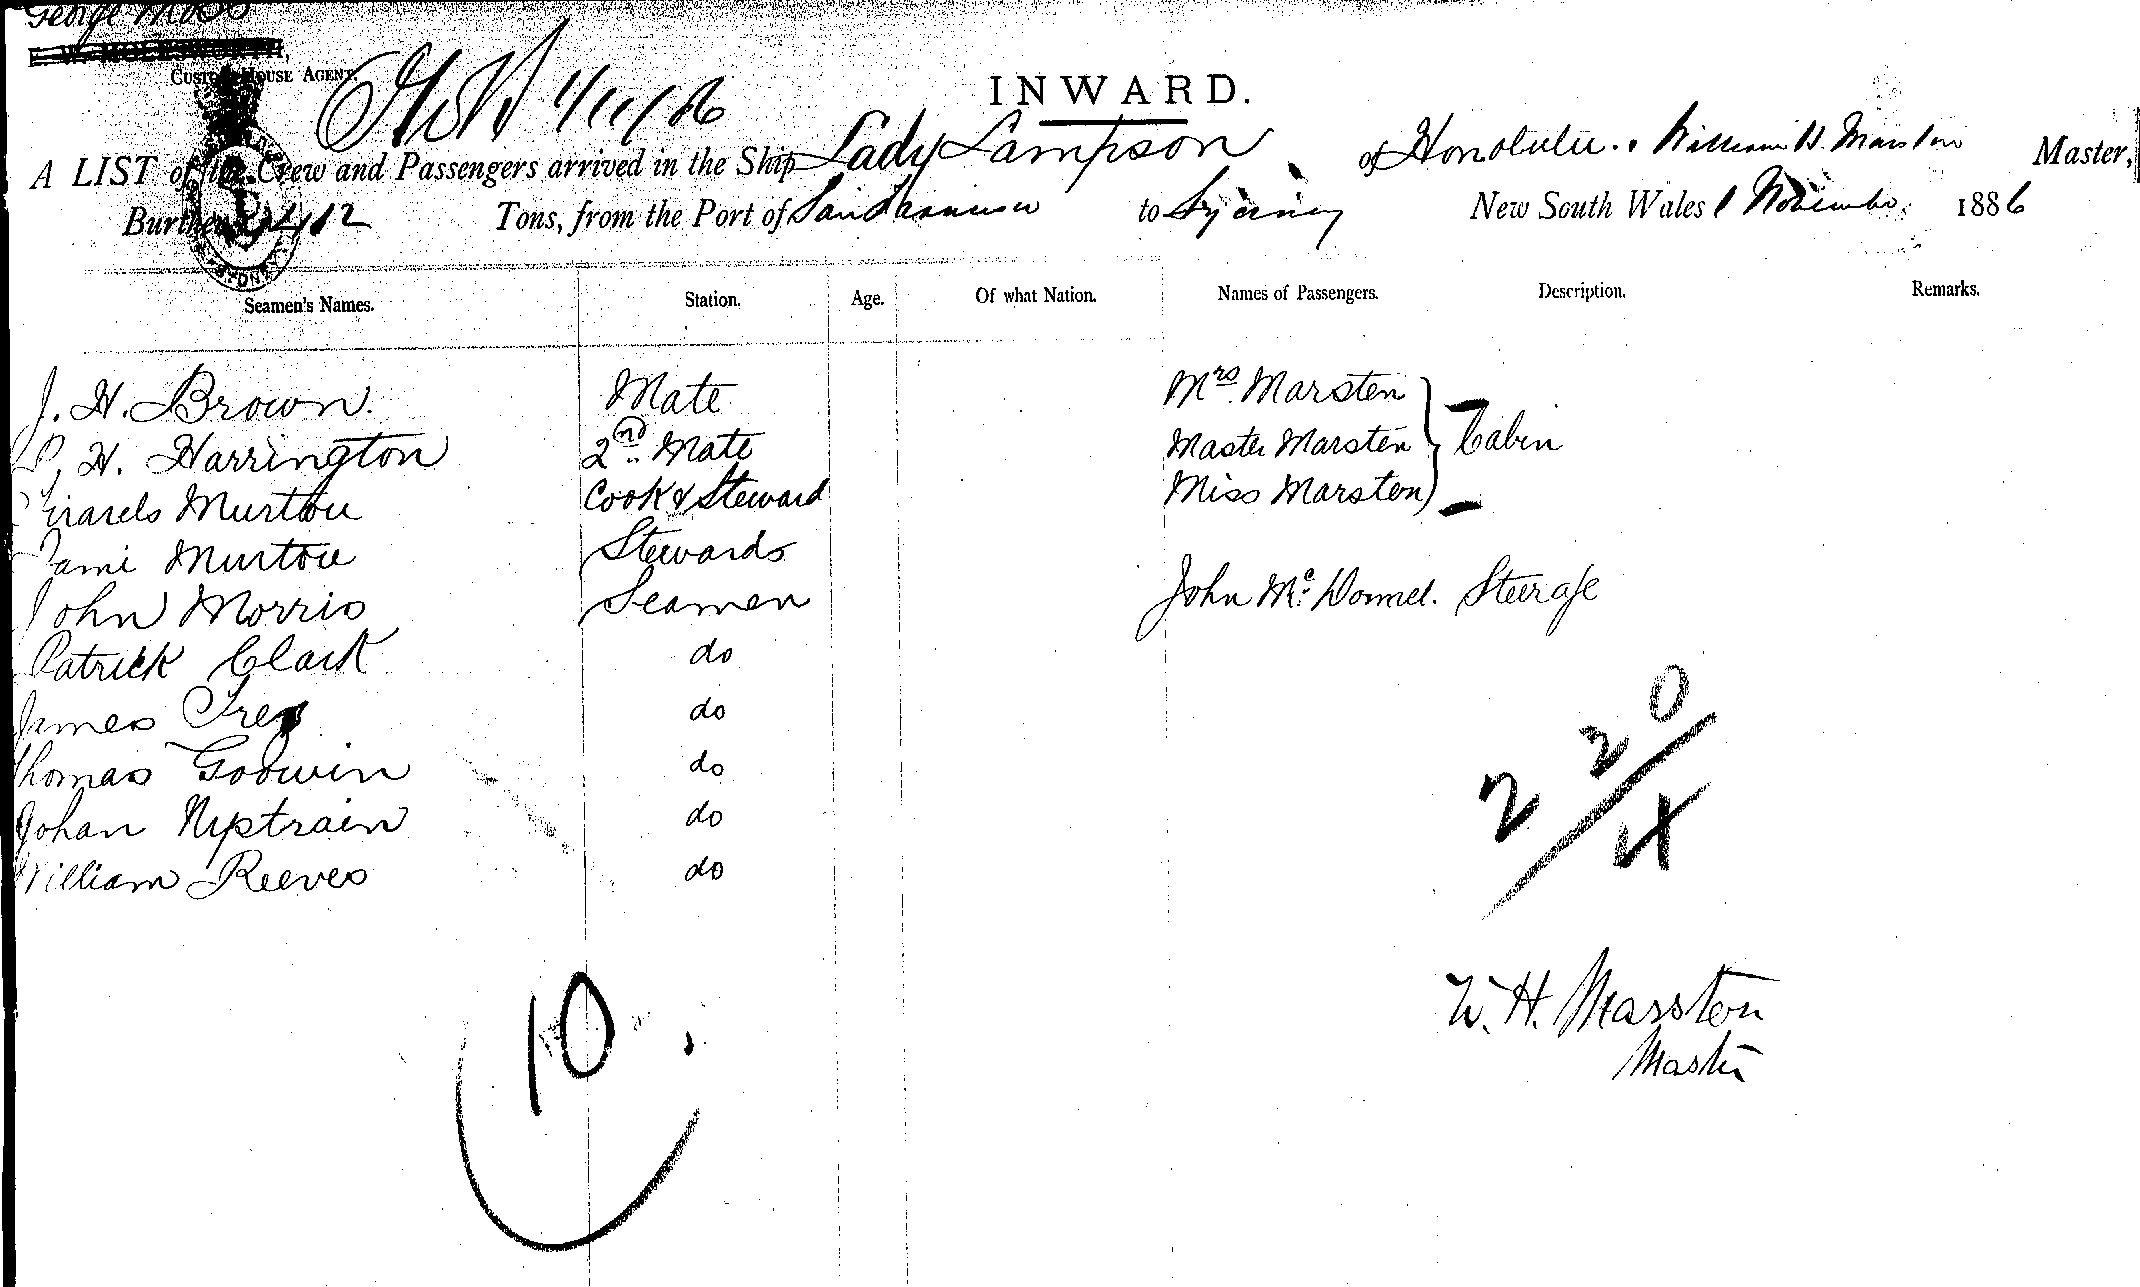 George
CUSTOM HOUSE AGENT.
1/11/86
INWARD.
A LIST of the Crew and Passengers arrived in the Ship Lady Lampson of Honolulu. William H. Marston Master,
Burthen 412 Tons, from the Port of San Francisco to Sydney New South Wales 1 November 1886
Seamen's Names. Station. Age. Of what Nation. Names of Passengers. Description. Remarks.
J. H. Brown. Mate Mrs. Marsten
H. Harrington 2nd Mate Master Marsten Cabin
Murtou Cook & Steward Miss Marston
Murtou Stewards
John Morris Seamen John Mc. Steerage
Patrick Clark do
James do
Thomas Godwin do
Johan Nystrain do
William Reeves do
2 20/4
10.
W. H. Marston
Master